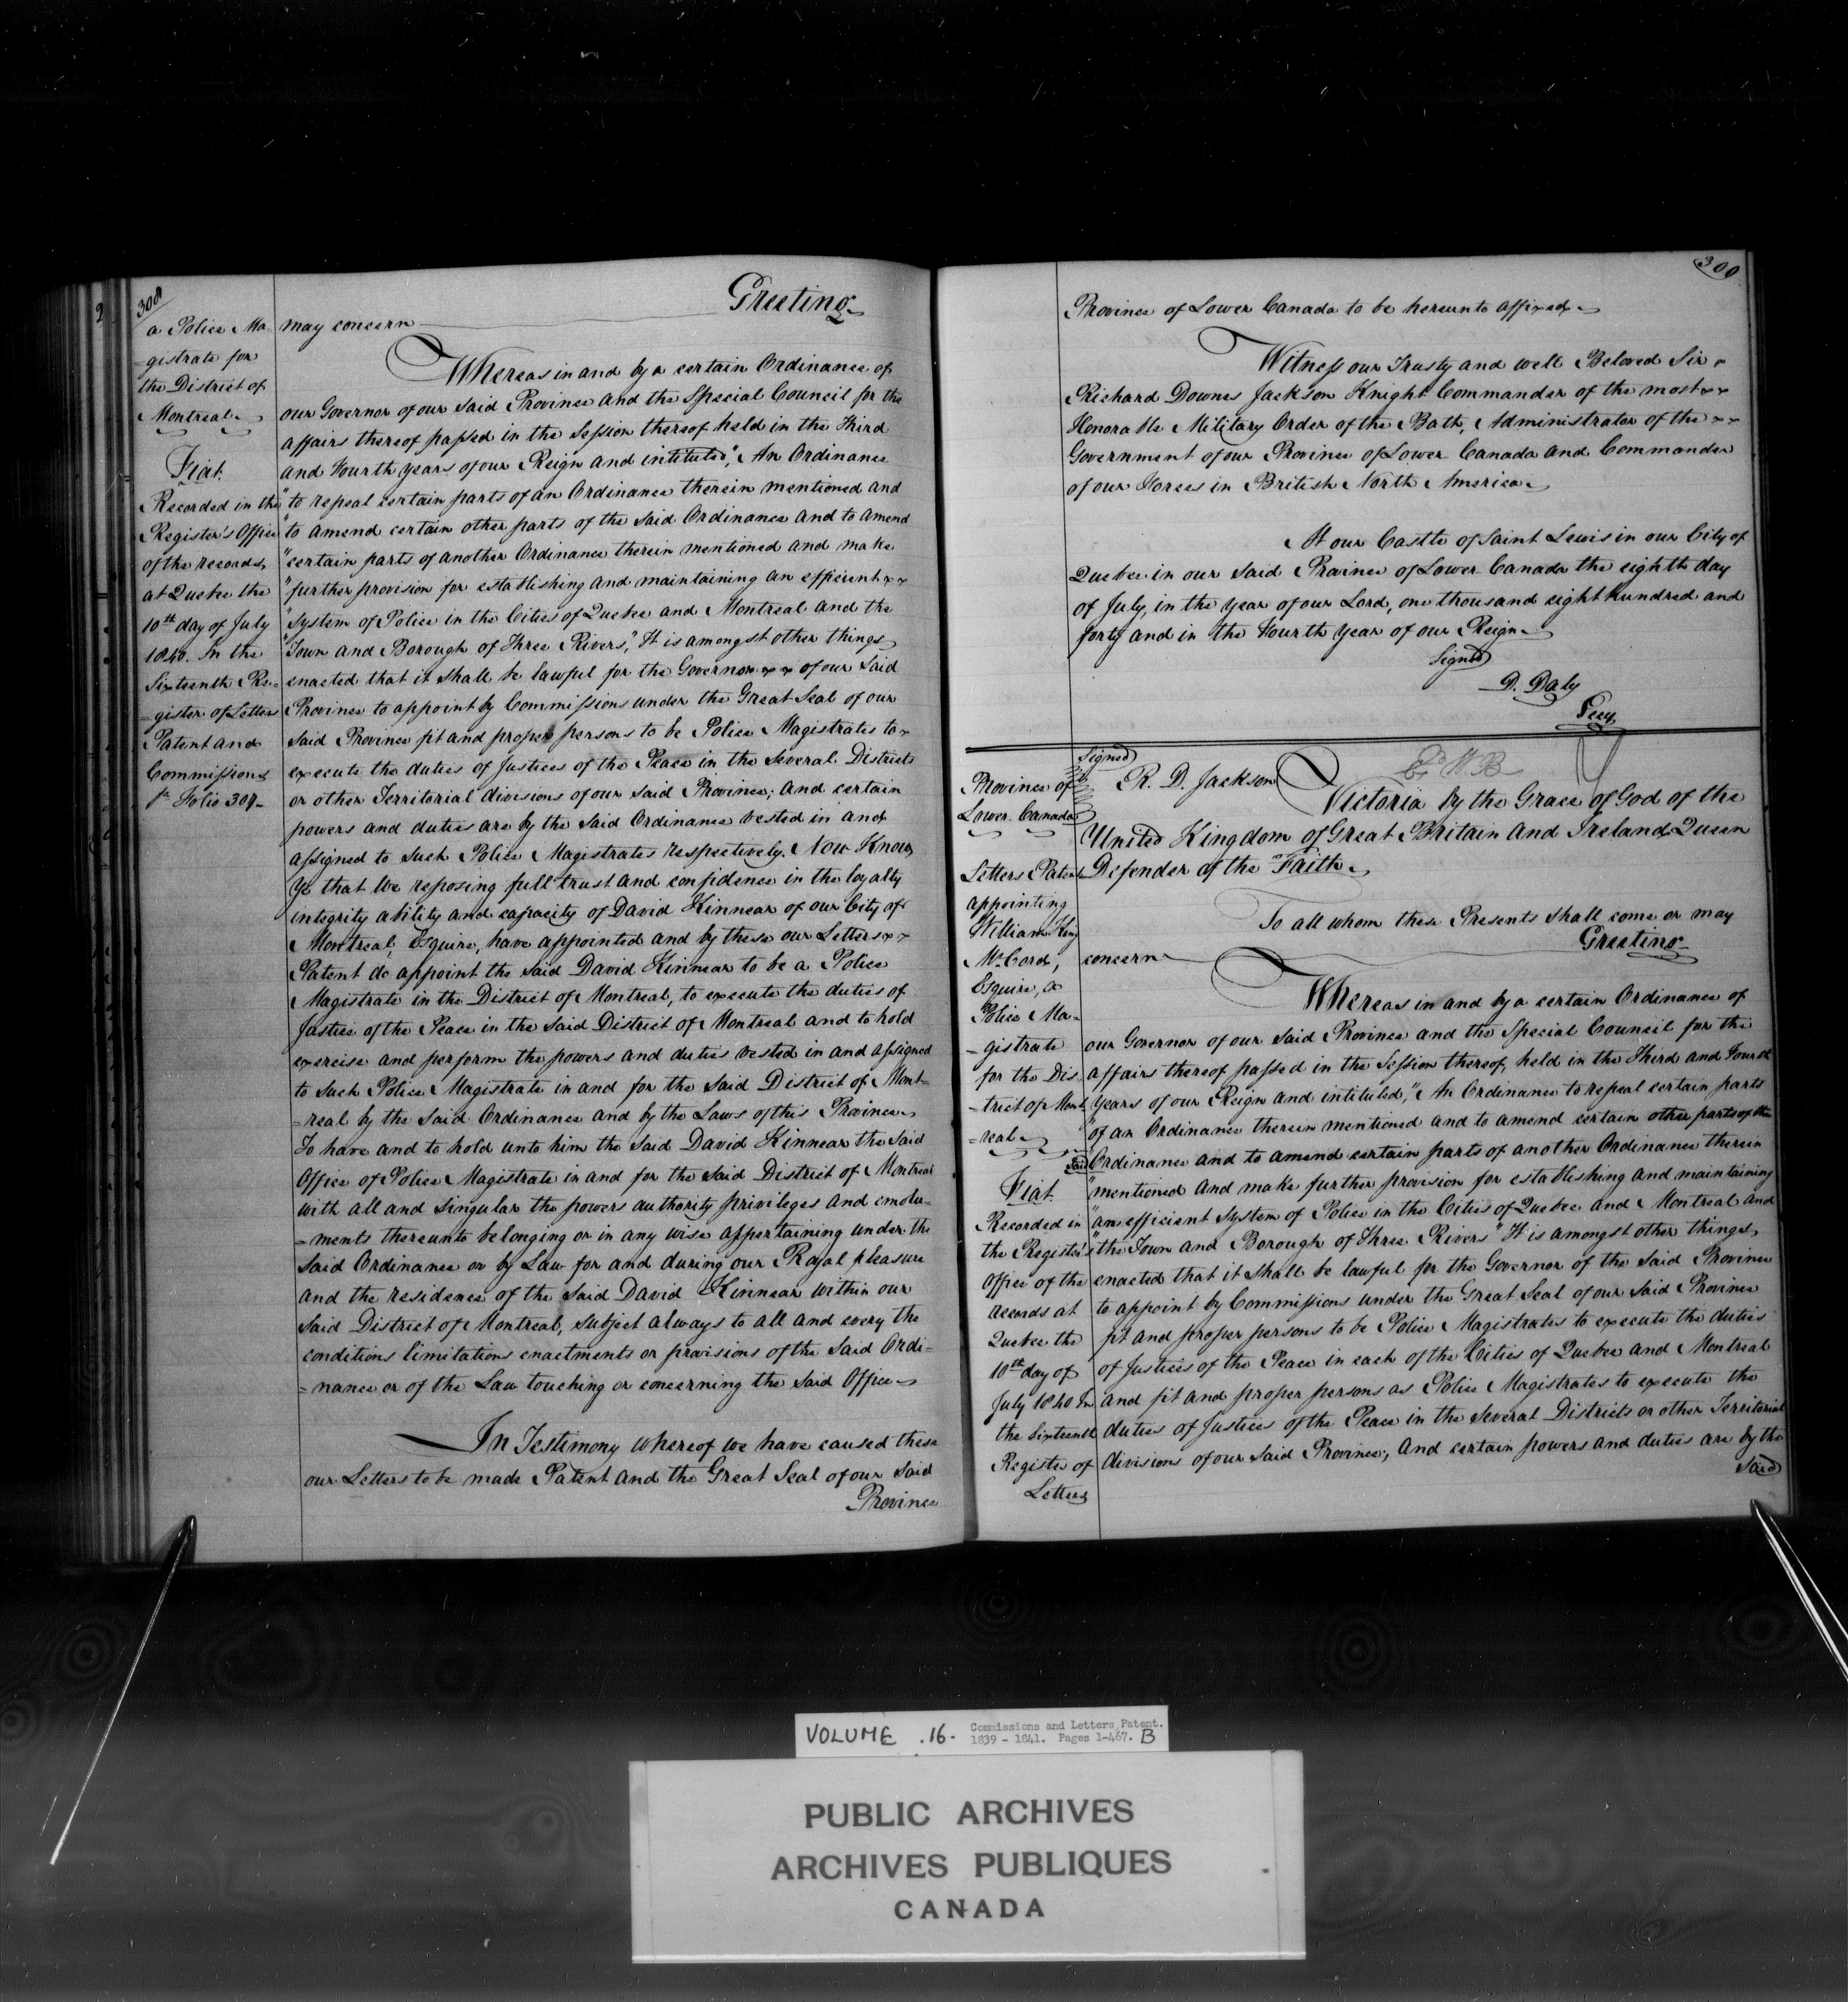 308
a Police Ma
=gistrate for
the District of
Montreal
Fiat.
Recorded in the
Register's Office
of the records
at Quebec the
10th day of July
1840. In the
Sixteenth Re=
=gister of Letters
Patent and
Commissions
Folio 307
Greeting
may concern
Whereas in and by a certain Ordinance of
our Governor of our said Province and the Special Council for the
affairs thereof passed in the Session thereof held in the Third
and Fourth years of our Reign and intituled, "An Ordinance
"to repeal certain parts of an Ordinance therein mentioned and
"to amend certain other parts of the said Ordinance and to amend
"certain parts of another Ordinance therein mentioned and make
"further provision for establishing and maintaining an efficient x x
"System of Police in the Cities of Quebec and Montreal and the
"Town and Borough of Three Rivers," It is amongst other things
enacted that it shall be lawful for the Governor x x of our Said
Province to appoint by Commissions under the Great Seal of our
said Province fit and proper persons to be Police Magistrates to x
execute the duties of Justices of the Peace in the Several Districts
or other Territorial divisions of our said Province; and certain
powers and duties are by the said Ordinance vested in and
assigned to such Police Magistrates respectively. Now Know
Ye that We reposing full trust and confidence in the loyalty
integrity ability and capacity of David Kinnear of our City of
Montreal, Esquire, have appointed and by these our Letters x x
Patent do appoint the said David Kinnear to be a Police
Magistrate in the District of Montreal, to execute the duties of
Justice of the Peace in the said District of Montreal and to hold
exercise and perform the powers and duties vested in and assigned
to such Police Magistrate in and for the said District of Mont=
=real by the said Ordinance and by the Laws of this Province
To have and to hold unto him the said David Kinnear the said
Office of Police Magistrate in and for the said District of Montreal
with all and singular the powers authority privileges and emolu=
=ments thereunto belonging or in any wise appertaining under the
said Ordinance or by Law for and during our Royal pleasure
and the residence of the said David Kinnear within our
said District of Montreal, subject always to all and every the
conditions limitations enactments or provisions of the said Ordi=
=nance or of the Law touching or concerning the said Office
In Testimony whereof we have caused these
our Letters to be made Patent and the Great Seal of our said
Province
309
Province of Lower Canada to be hereunto affixed
Witness our Trusty and well Beloved Sir
Richard Downes Jackson Knight Commander of the most x x
Honorable Military Order of the Bath, Administrator of the x x
Government of our Province of Lower Canada and Commander
of our Forces in British North America
At our Castle of Saint Lewis in our City of
Quebec in our said Province of Lower Canada the eighth day
of July, in the year of our Lord, one thousand eight hundred and
forty and in the Fourth year of our Reign
Signed
D. Daly
Secy
Province of
Lower Canada
Letters Patent
appointing
William King
McCord,
Esquire, a
Police Ma=
=gistrate
for the Dis
=trict of Mont
=real
Fiat.
Recorded in
the Register's
Office of the
records at
Quebec the
10th day of
July 1840 In
the Sixteenth
Register of
Letters
Signed
R. D. Jackson
Victoria by the Grace of God of the
United Kingdom of Great Britain and Ireland Queen
Defender of the Faith
To all whom these Presents shall come or may
Greeting
concern
Whereas in and by a certain Ordinance of
our Governor of our said Province and the Special Council for the
affairs thereof passed in the Session thereof, held in the Third and Fourth
years of our Reign and intituled, "An Ordinance to repeal certain parts
"of an Ordinance therein mentioned and to amend certain other parts of the
said Ordinance and to amend certain parts of another Ordinance therein
"mentioned and make further provision for establishing and maintaining
"an efficient System of Police in the Cities of Quebec and Montreal and
"the Town and Borough of Three Rivers" It is amongst other things
enacted that it shall be lawful for the Governor of the said Province
to appoint by Commissions under the Great Seal of our said Province
fit and proper persons to be Police Magistrates to execute the duties
of Justices of the Peace in each of the Cities of Quebec and Montreal
and fit and proper persons as Police Magistrates to execute the
duties of Justices of the Peace in the several Districts or other Territorial
divisions of our said Province; and certain powers and duties are by the
Said
VOLUME .16. Commissions and Letters Patent.
1839 - 1841. Pages 1-467. B
PUBLIC ARCHIVES
ARCHIVES PUBLIQUES
CANADA